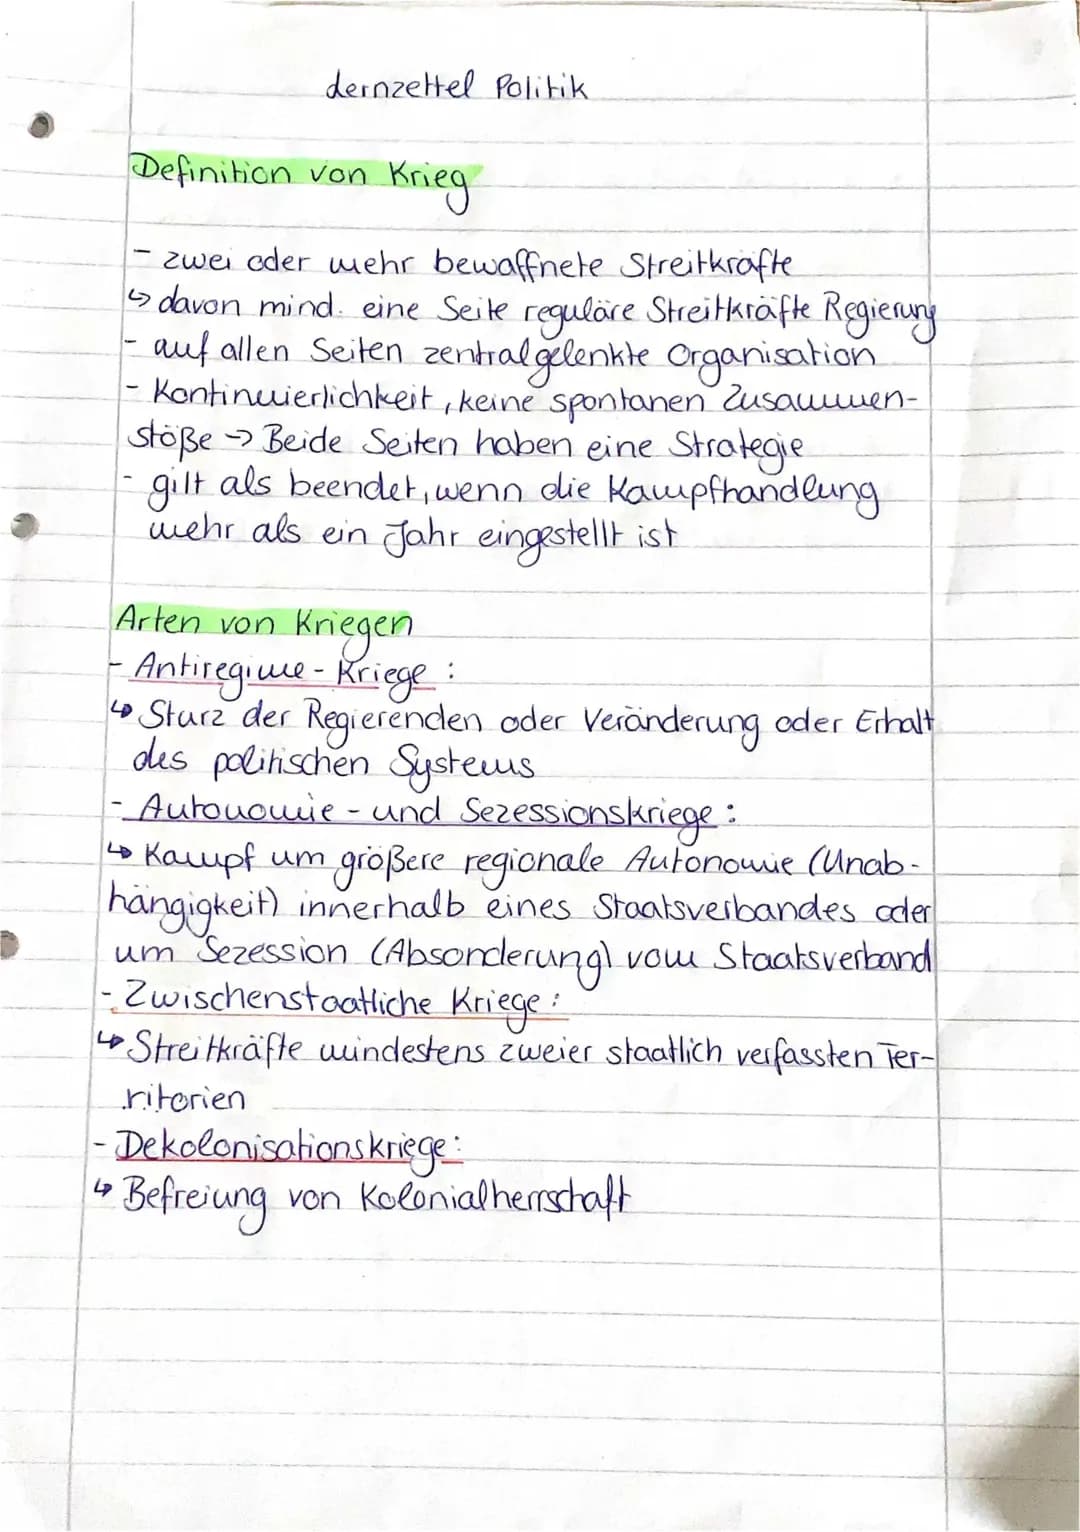 Lernzettel Politik
Definition von Krieg
- zwei oder mehr bewaffnete Streitkräfte
↳ davon mind. eine Seite reguläre Streitkräfte Regierung
- auf allen Seiten zentralgelenkte Organisation
- Kontinuierlichkeit, keine spontanen Zusammen-
stöße → Beide Seiten haben eine Strategie
- gilt als beendet, wenn die Kampfhandlung
mehr als ein Jahr eingestellt ist
Arten von Kriegen
- Antiregime-Kriege:
↳ Sturz der Regierenden oder Veränderung oder Erhalt
des politischen Systems
- Autonomie- und Sezessionskriege:
↳ Kampf um größere regionale Autonomie (Unab-
hängigkeit) innerhalb eines Staatsverbandes oder
um Sezession (Absonderung) vom Staatsverband
- Zwischenstaatliche Kriege:
↳ Streitkräfte mindestens zweier staatlich verfassten Ter-
ritorien
- Dekolonisationskriege:
↳ Befreiung von Kolonialherrschaft